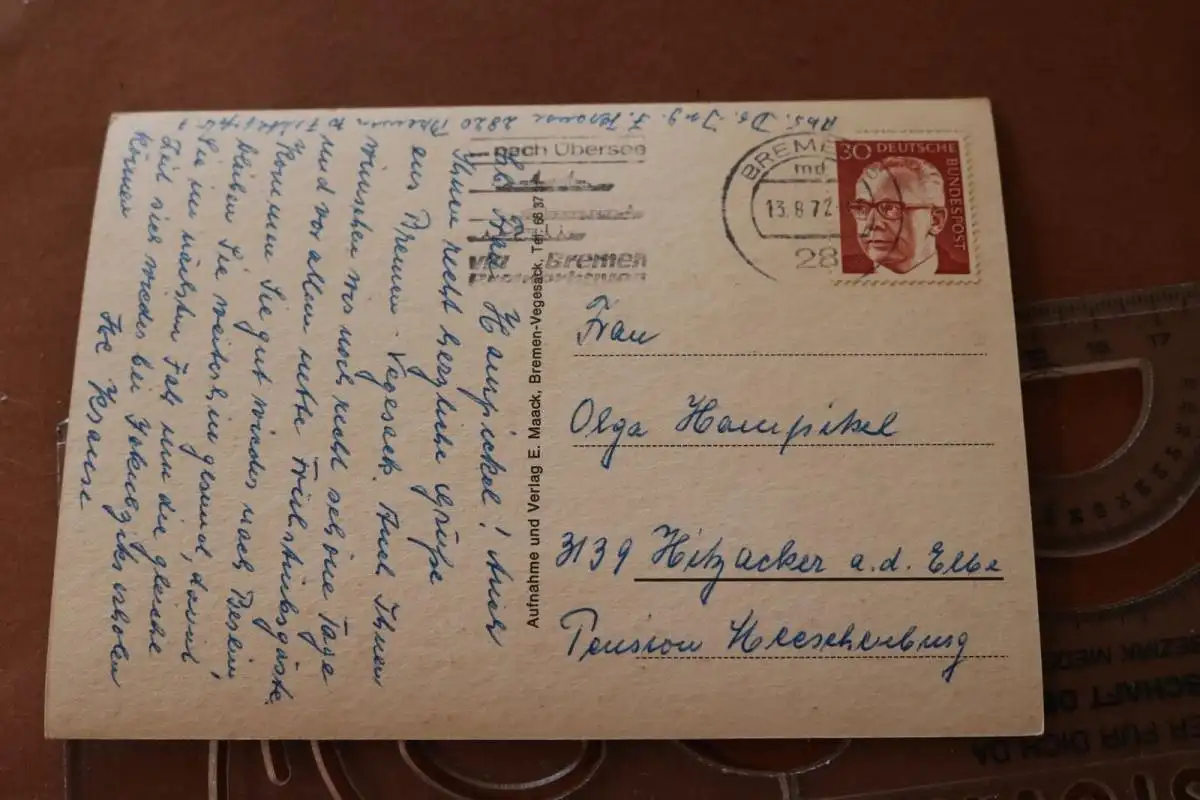 Abs. Dr. Ing. F. Krause 2820 Bremen
nach Übersee
via Bremen
BREMEN
md
13.8.72
28
30 DEUTSCHE
BUNDESPOST
Lb. Frau Hampickel! Auch
Ihnen recht herzliche Grüße
aus Bremen-Vegesack. Auch Ihnen
wünschen wir noch recht schöne Tage
und vor allem nette Frühstücksgäste.
Kommen Sie gut wieder nach Berlin,
bleiben Sie weiterhin gesund, damit
Sie im nächsten Jahr um die gleiche
Zeit sich wieder bei erholen
können
Ihre Krause
Aufnahme und Verlag E. Maack, Bremen-Vegesack, Tel. 66 37
Frau
Olga Hampikel
3139 Hitzacker a.d. Elbe
Pension Meeschenburg
16 17
BEZIRK
SCHAFT
ER FÜR DICH DA